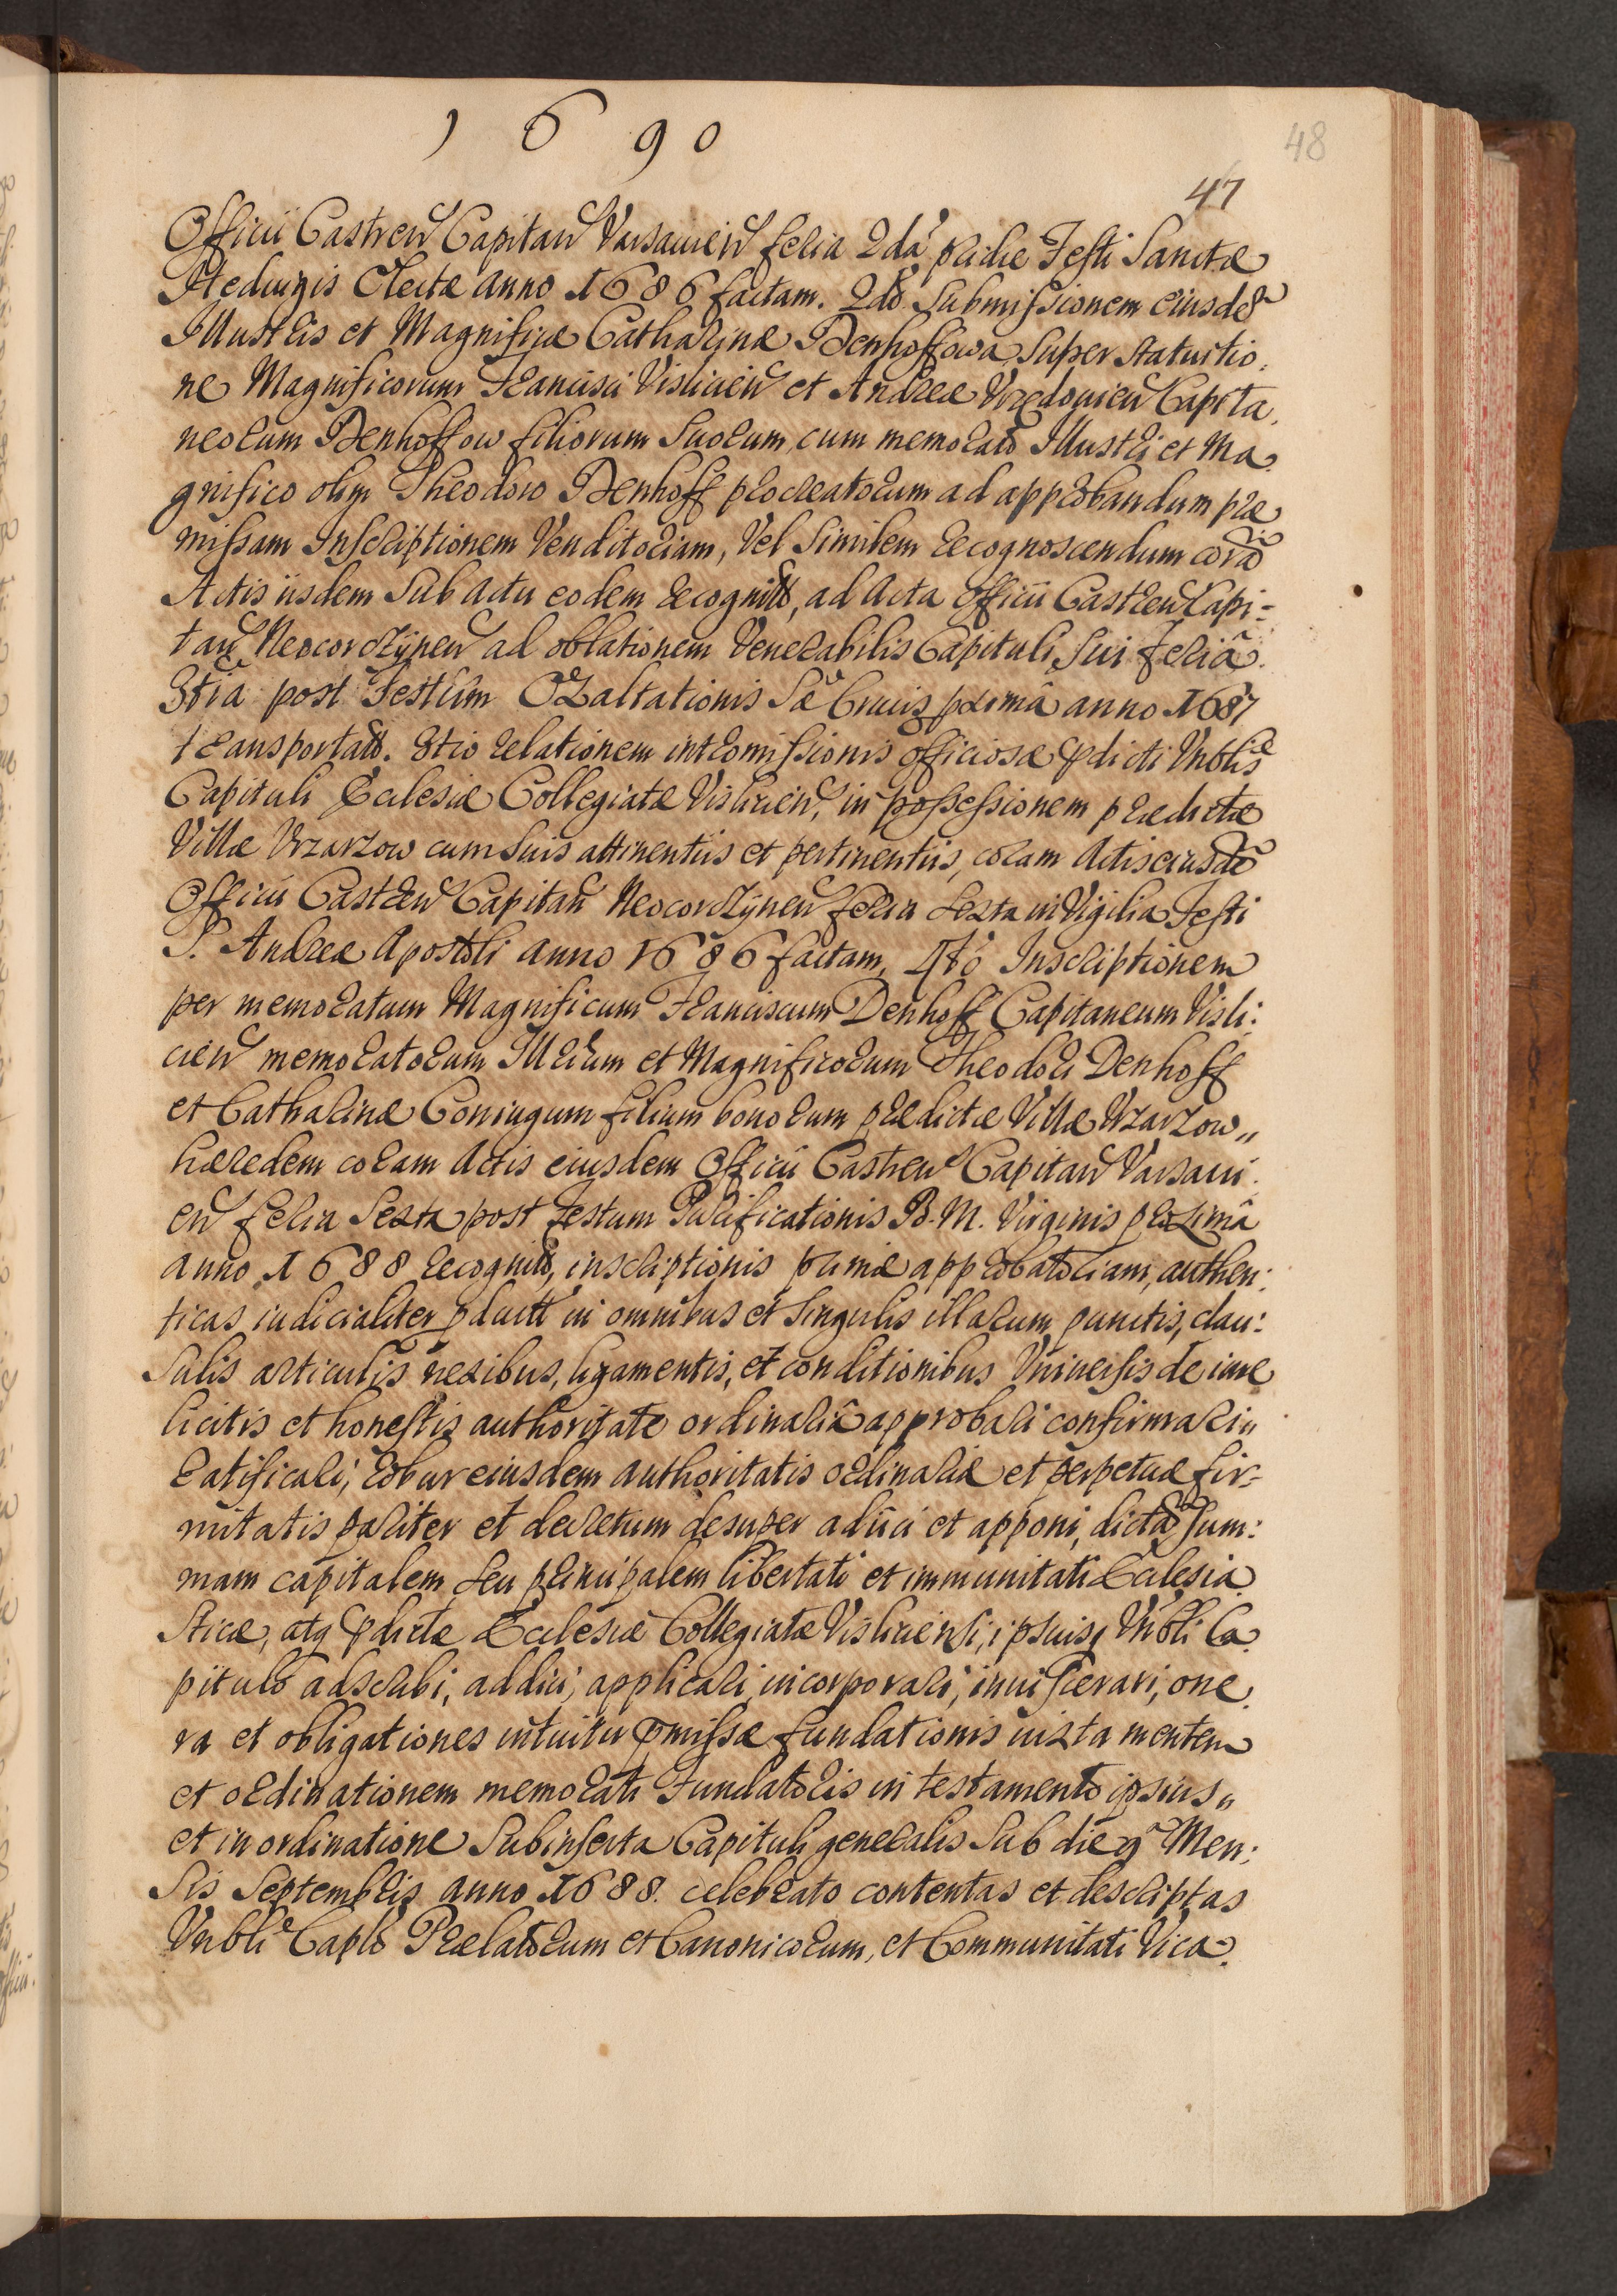 1690
48
47
Officii Castren Capitan Varsavien feria 2dâ pridie Festi Sanctæ
Hedvigis Electæ anno 1686 factam. 2dò Submissionem eiusdẽ
Illustris et Magnificæ Catharinæ Denhoffowa Super statuitio.
ne Magnificorum Francisci Vislicien et Andreæ Vrzedovien Capita.
neorum Denhoffow filiorum Suorum, cum memorato Illustri et Ma.
gnifico olim Theodoro Denhoff procreatorum ad approbandum præ
missam Inscriptionem Venditoriam, Vel Similem recognoscendum corã
Actis iisdem Sub actu eodem recognitã, ad Acta Officii Castren Capi=
tan Neocorczÿnen ad oblationem Venerabilis Capituli, Sui feriâ
3tiâ post Festum Exaltationis Sæ Crucis pximâ anno 1687
transportatã. 3tiò relationem intromissionis officiosæ pdicti Vnblis
Capituli Ecclesiæ Collegiatæ Vislicien, in possessionem prædictæ
Villæ Vrzarzow cum Suis attinentiis et pertinentiis, coram Actis eiusdẽ
Officii Castren Capitan Neocorczÿnen feria Sexta in Vigilia Festi
S. Andreæ Apostoli anno 1686 factam, 4tò Inscriptionem
per memoratum Magnificum Franciscum Denhoff Capitaneum Visli:
cien memoratorum Illrium et Magnificorum Theodori Denhoff
et Catharinæ Coniugum filium bonorum prædictæ Villæ Vrzarzow„
hæredem coram Actis eiusdem Officii Castren Capitan Varsavi.
en feria Sexta post Festum Purificationis B. M. Virginis proximâ
anno 1688 recognitã, inscriptionis primæ approbatoriam, authen:
ticas iudicialiter pductt in omnibus et Singulis illarum punctis, clau:
Sulis articulis nexibus, ligamentis, et conditionibus Vniversis de iure
licitis et honestis authoritate ordinariâ approbari confirmari„
ratificari, robur eiusdem authoritatis ordinariæ et perpetuæ fir=
mitatis pariter et decretum desuper adiici et apponi, dictã Sum:
mam capitalem Seu principalem libertati et immunitati Ecclesia.
sticæ, atq pdictæ Ecclesiæ Collegiatæ Visliciensi, ipsiusq Vnbli Ca.
pitulo adscribi, addici, applicari, incorporari, inviscerari, one.
ra et obligationes intuitu pmissæ fundationis iuxta mentem
et ordinationem memorati Fundatoris in testamento ipsius„
et in ordinatione Subinserta Capituli generalis Sub die 9 Men:
Sis Septembris anno 1688. celebrato contentas et descriptas
Vnbli Caplo Prælatorum et Canonicorum, et Communitati Vica: